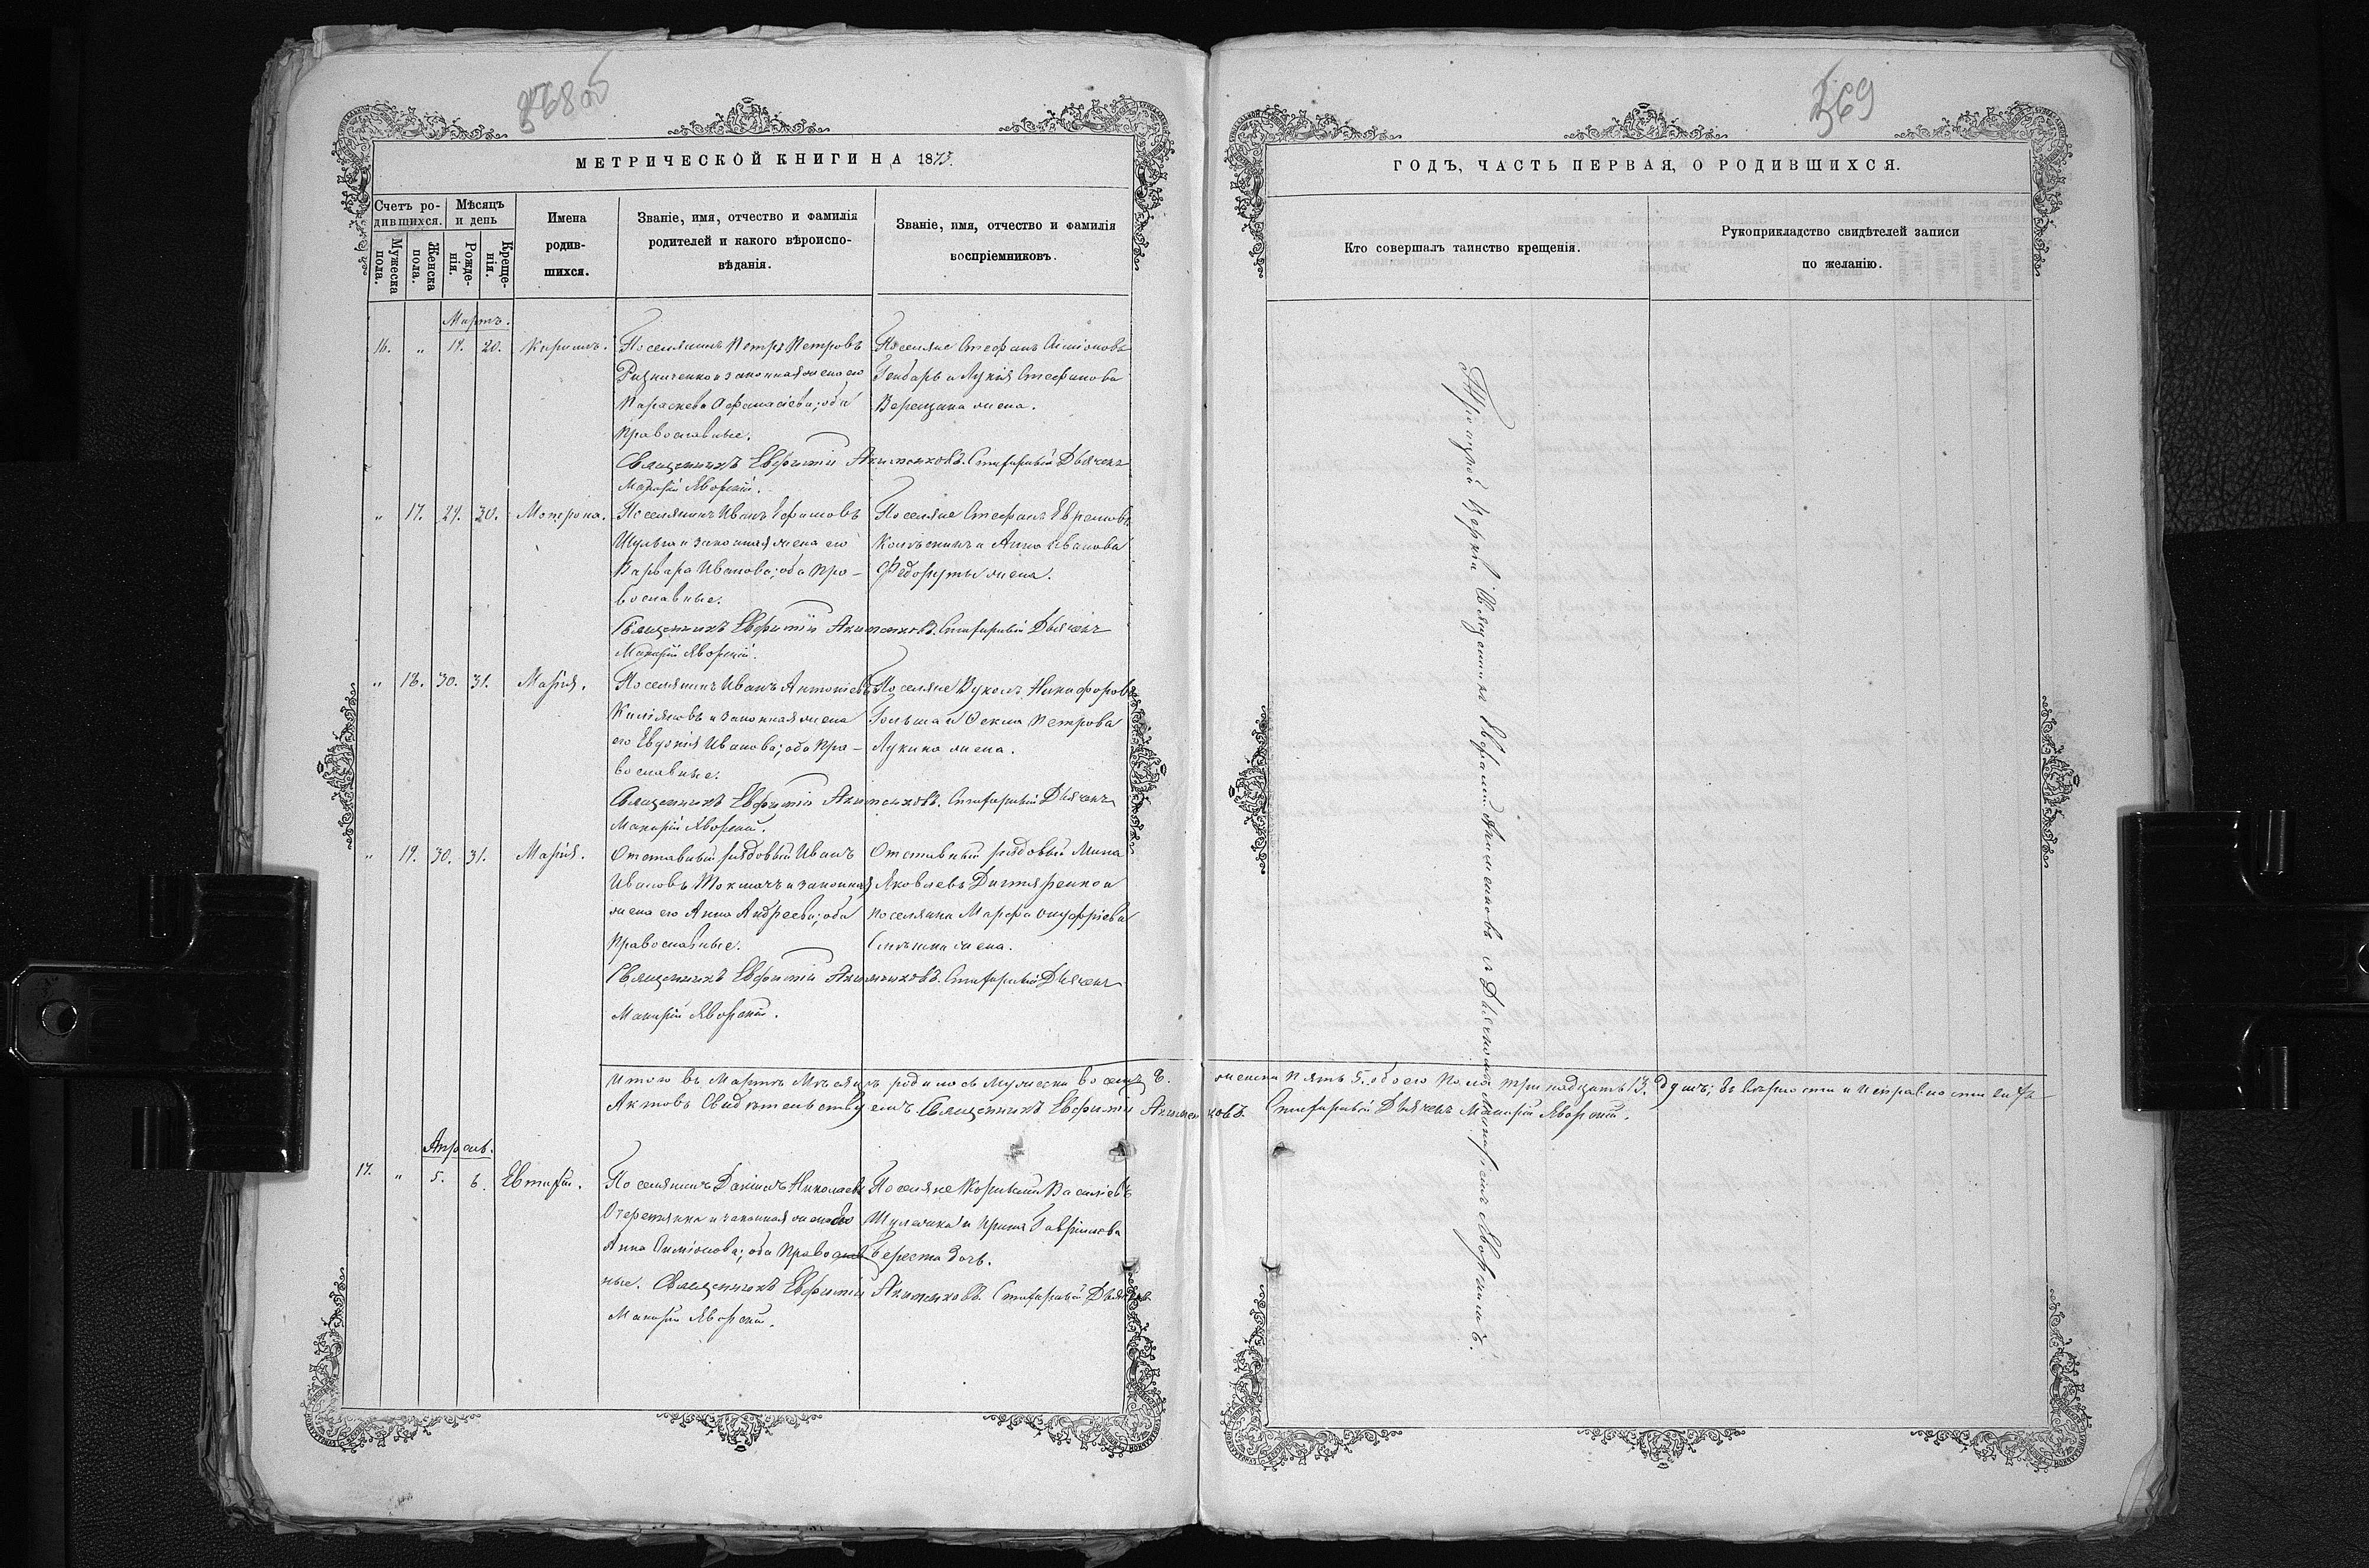 368 об
369
МЕТРИЧЕСКОЙ КНИГИ НА 1875.
ГОДЪ, ЧАСТЬ ПЕРВАЯ, О РОДИВШИХСЯ.
Счетъ родившихся.
Мужеска пола.
Женска пола.
Мѣсяцъ и день
Рожденія.
Крещенія.
Имена родившихся.
Званіе, имя, отчество и фамилія родителей и какого вѣроисповѣданія.
Званіе, имя, отчество и фамилія воспріемниковъ.
Кто совершалъ таинство крещенія.
Рукоприкладство свидѣтелей записи по желанію.
Мартъ.
16. " 19. 20. Кириллъ.
Поселянинъ Петръ Петровъ
Ризниченко и законная жена его
Параскева Афанасіева; оба
православные.
Поселяне Стефанъ
и Лукія Стефанова
жена.
Священникъ Евфимій Акименковъ. Стихарный Дьячекъ
Макарій Яворскій.
" 17. 29. 30. Мотрона.
Поселянинъ Иванъ Ефимовъ
Шульга и законная жена его
Варвара Иванова; оба пра-
вославные.
Поселяне Стефанъ Ефремовъ
и Анна Иванова
жена.
Священникъ Евфимій Акименковъ. Стихарный Дьячекъ
Макарій Яворскій.
" 18. 30. 31. Марія.
Поселянинъ Иванъ Антоніевъ
и законная жена
его Евдокія Иванова; оба пра-
вославные.
Поселяне Вуколъ Никифоровъ
и Фекла Петрова
Лукина жена.
Священникъ Евфимій Акименковъ. Стихарный Дьячекъ
Макарій Яворскій.
" 19. 30. 31. Марія.
Отставный рядовый Иванъ
Ивановъ Токмачъ и законная
жена его Анна Андреева; оба
православные.
Отставный рядовый Мина
Яковлевъ Дигтяренко и
поселянка Марфа Онуфріева
жена.
Священникъ Евфимій Акименковъ. Стихарный Дьячекъ
Макарій Яворскій.
Итого въ Мартѣ Мѣсяцѣ родилось Мужеска восемь 8. женска пять 5. обоего пола тринадцать 13. душъ; въ вѣрности и исправности сихъ
Актовъ Свидѣтельствуемъ. Священникъ Евфимій Акименковъ. Стихарный Дьячекъ Макарій Яворскій.
Апрель.
17. " 5. 6. Евтихій.
Поселянинъ Даніилъ Николаевъ
Очеретянко и законная жена его
Анна Антонова; оба православ
ные.
Поселяне Корнилій Василіевъ
и Ирина Гавріилова
Береста дочь.
Священникъ Евфимій Акименковъ. Стихарный Дьячекъ
Макарій Яворскій.
Церкви Священникъ Евфимій Акименковъ съ Дьячкомъ Макаріемъ Яворскимъ.